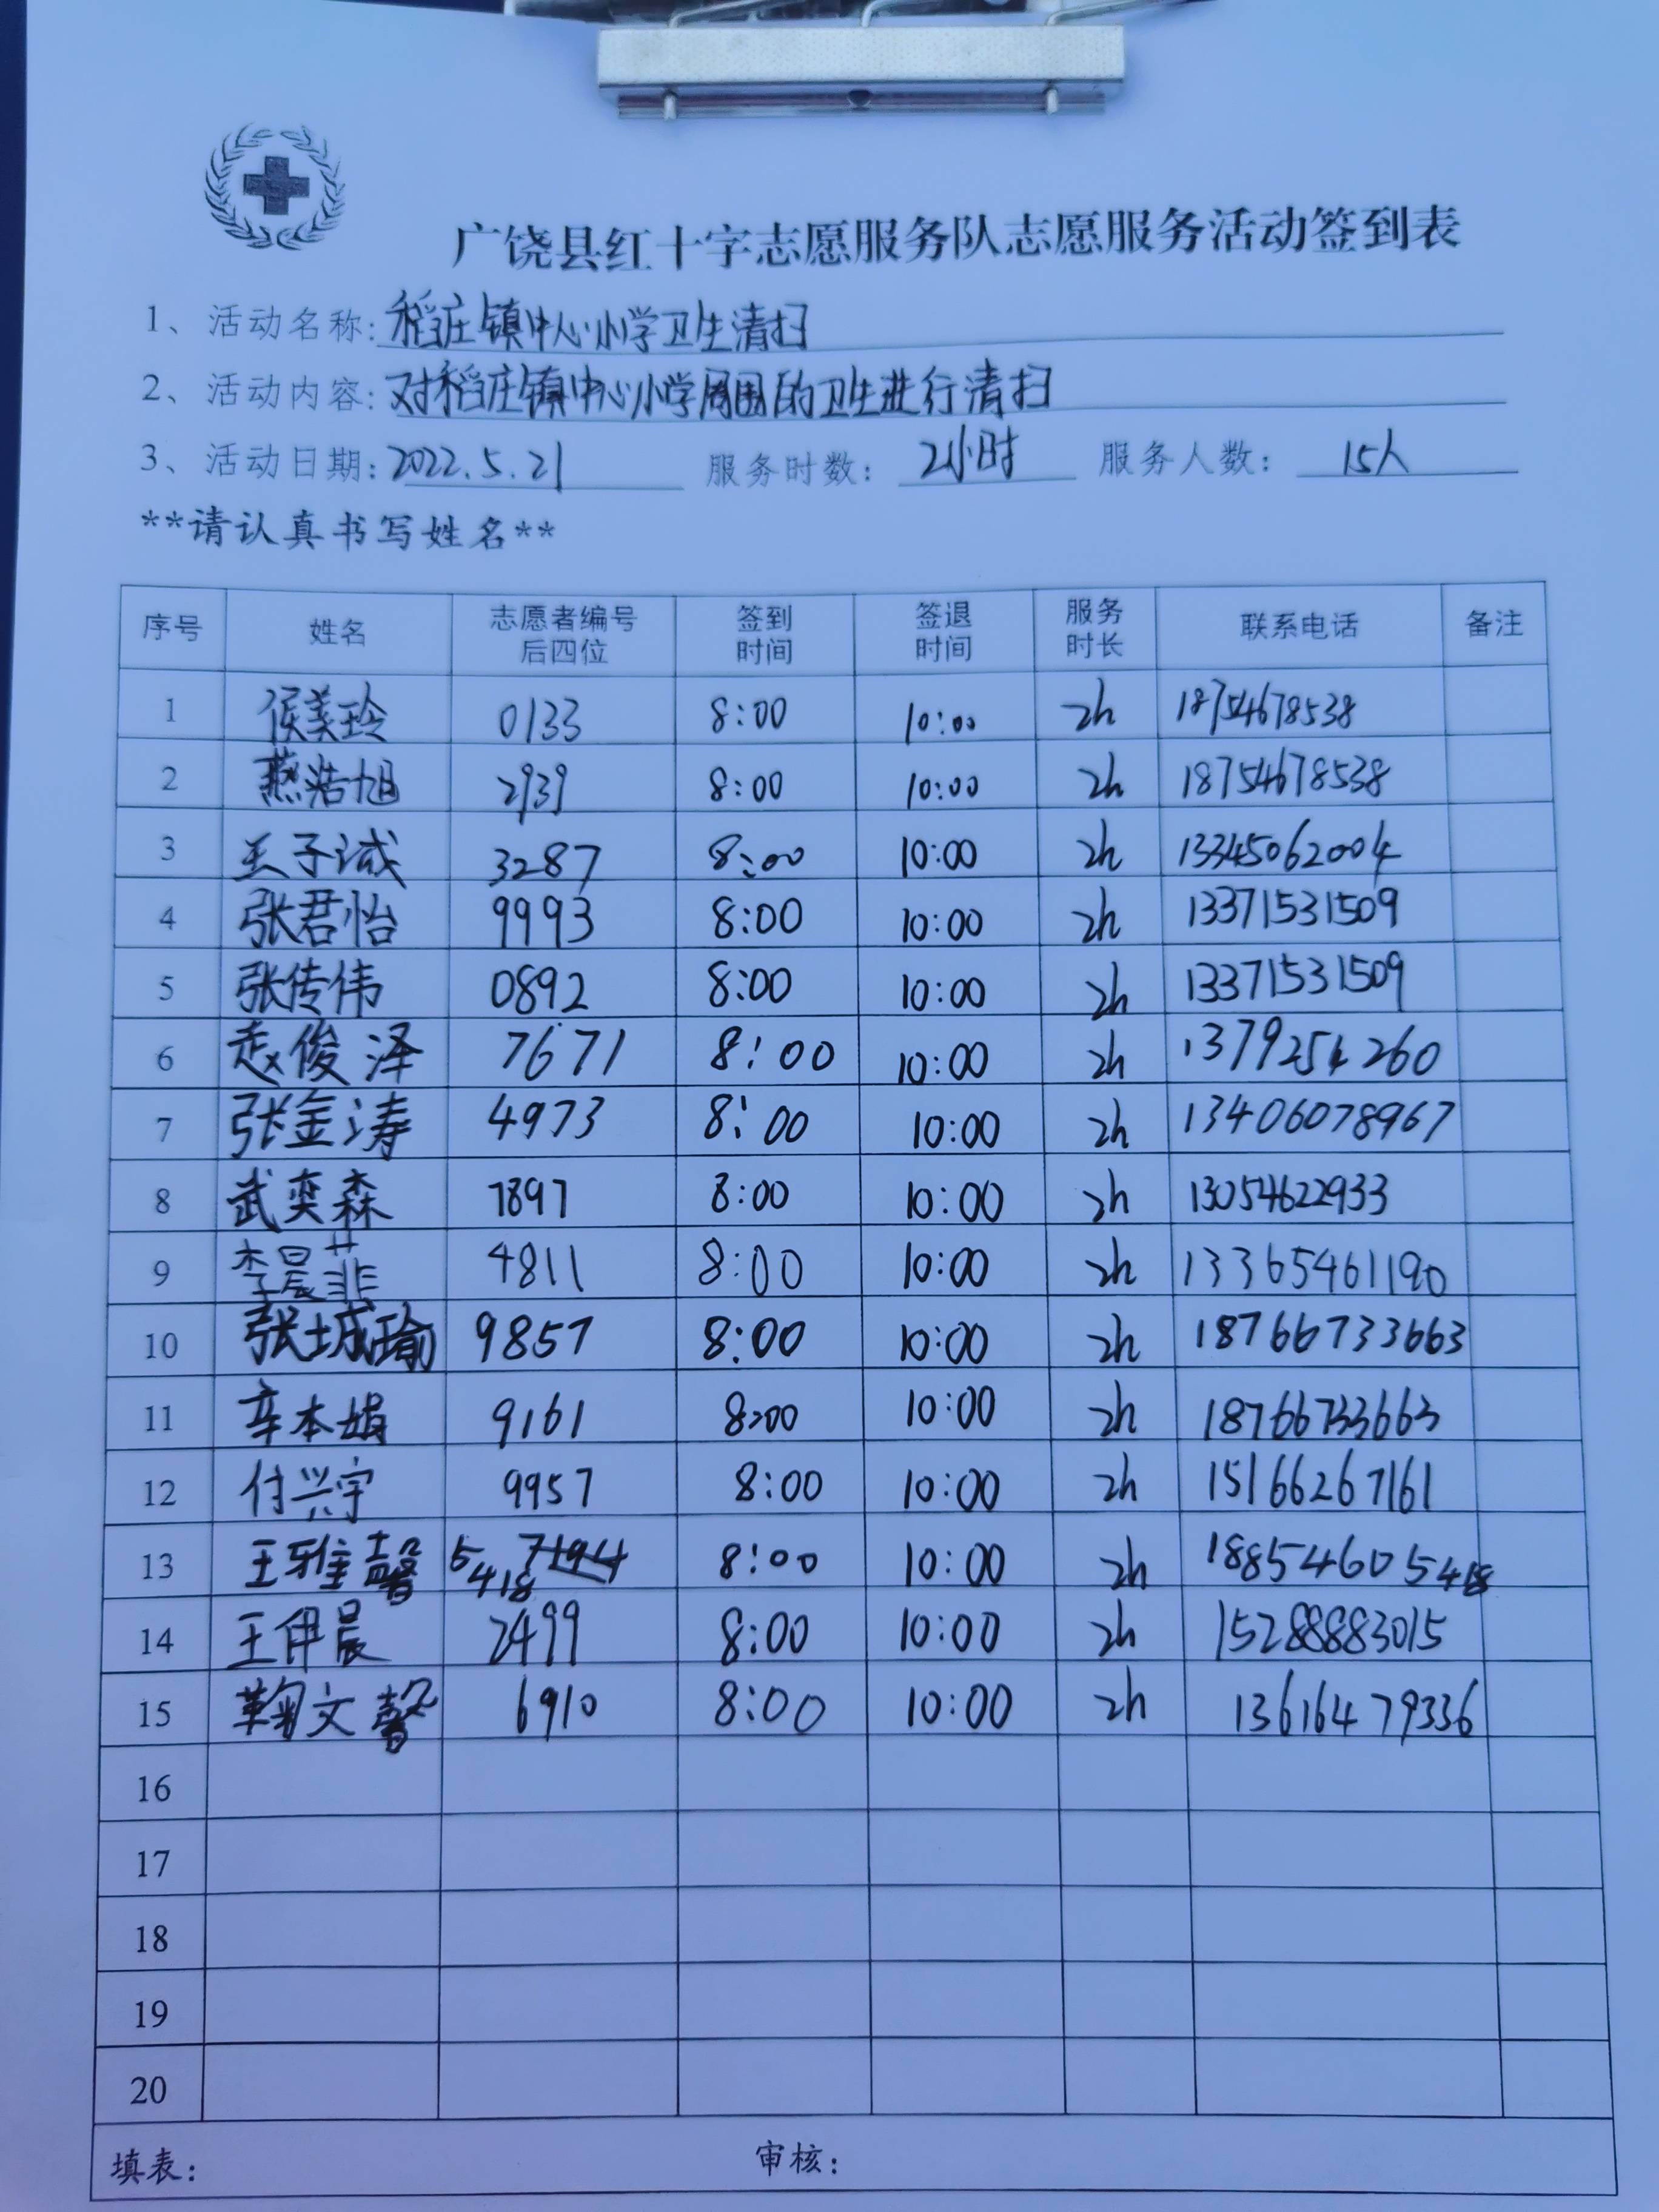 广饶县红十字志愿服务队志愿服务活动签到表
1、活动名称:稻庄镇中心小学卫生清扫
2、活动内容:对稻庄镇中心小学周围的卫生进行清扫
3、活动日期:2022.5.21 服务时数:2小时 服务人数:15人
**请认真书写姓名**
序号 姓名 志愿者编号后四位 签到时间 签退时间 服务时长 联系电话 备注
1 侯美玲 0133 8:00 10:00 2h 18754678538
2 燕浩旭 2939 8:00 10:00 2h 18754678538
3 王子诚 3287 8:00 10:00 2h 13345062004
4 张君怡 9993 8:00 10:00 2h 13371531509
5 张传伟 0892 8:00 10:00 2h 13371531509
6 赵俊泽 7671 8:00 10:00 2h 1379254260
7 张金涛 4973 8:00 10:00 2h 13406078967
8 武奕森 7897 8:00 10:00 2h 13054622933
9 李晨菲 4811 8:00 10:00 2h 13365461190
10 张城瑜 9857 8:00 10:00 2h 18766733663
11 辛本娟 9161 8:00 10:00 2h 18766733663
12 付兴宇 9957 8:00 10:00 2h 15166267161
13 王雅馨 5418 8:00 10:00 2h 18854605418
14 王伊晨 2499 8:00 10:00 2h 15288883015
15 鞠文馨 6910 8:00 10:00 2h 13616479336
16
17
18
19
20
填表: 审核: